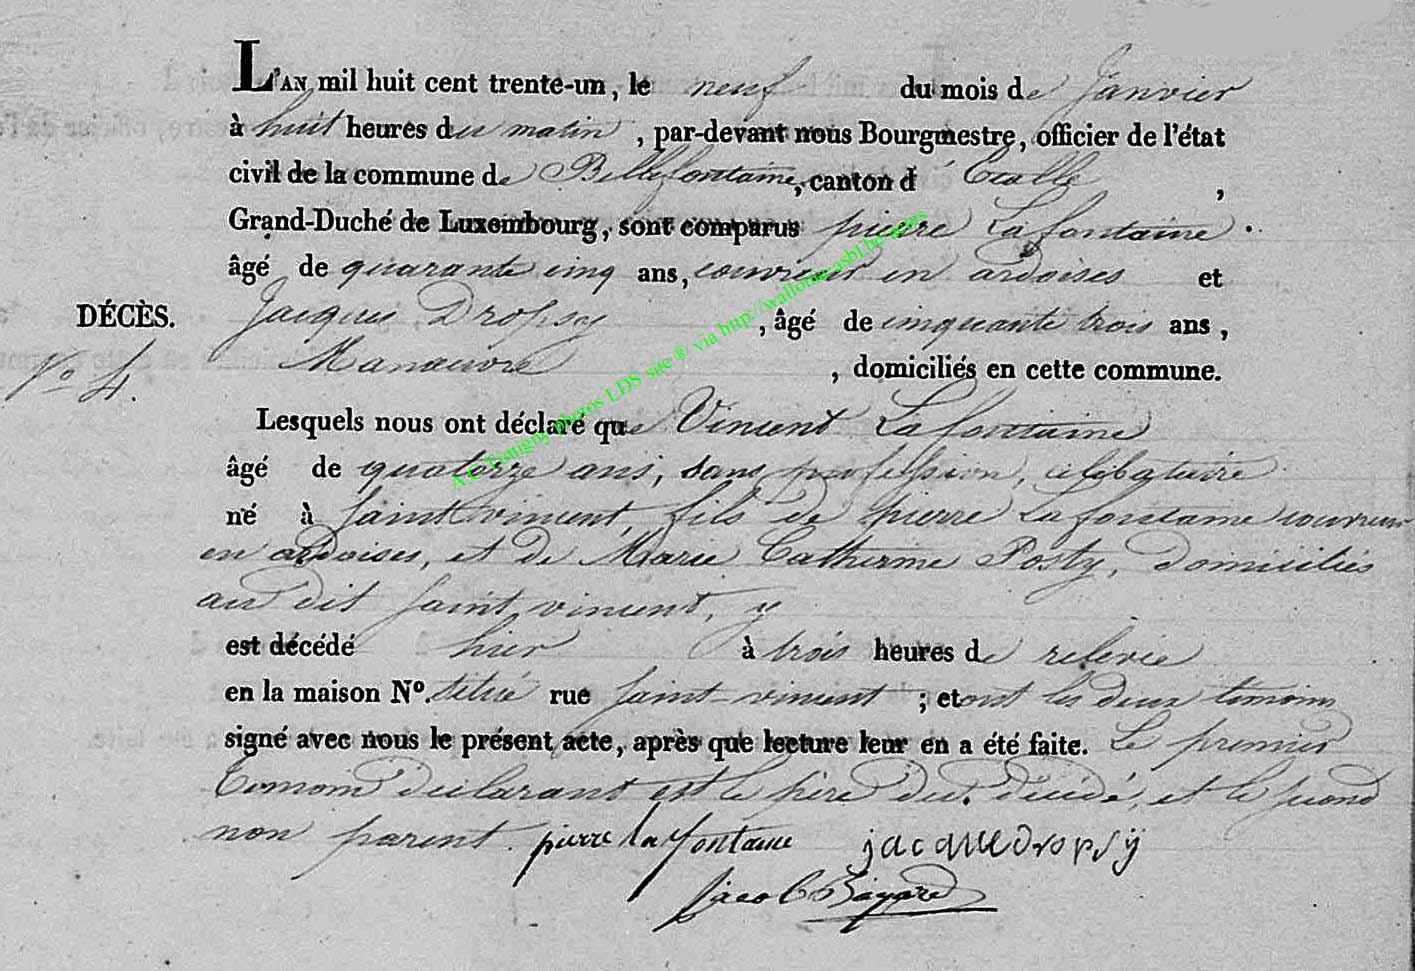 L'AN mil huit cent trente-un, le neuf du mois de Janvier
à huit heures du matin, par-devant nous Bourgmestre, officier de l'état
civil de la commune de Bellefontaine, canton d'Etalle,
Grand-Duché de Luxembourg, sont comparus pierre Lafontaine
âgé de quarante cinq ans, couvreur en ardoises et
DÉCÈS. Jacques Dropsy, âgé de cinquante trois ans,
No 4. Manœuvre, domiciliés en cette commune.
Lesquels nous ont déclaré que Vincent Lafontaine
âgé de quatorze ans, sans profession, celibataire
né à Saint vincent, fils de pierre Lafontaine couvreur
en ardoises, et de Marie Catherine Posty, domiciliés
au dit Saint vincent, y
est décédé hier à trois heures de relevée
en la maison No. rue Saint-vincent ; et ont les deux temoins
signé avec nous le présent acte, après que lecture leur en a été faite. Le premier
temoin declarant est le père du décédé, et le second
non parent. pierre lafontaine jacque dropsÿ
Jacob Bayard
A.C Tintigny photos LDS site ® via http://wallonia-asbl.be/actes